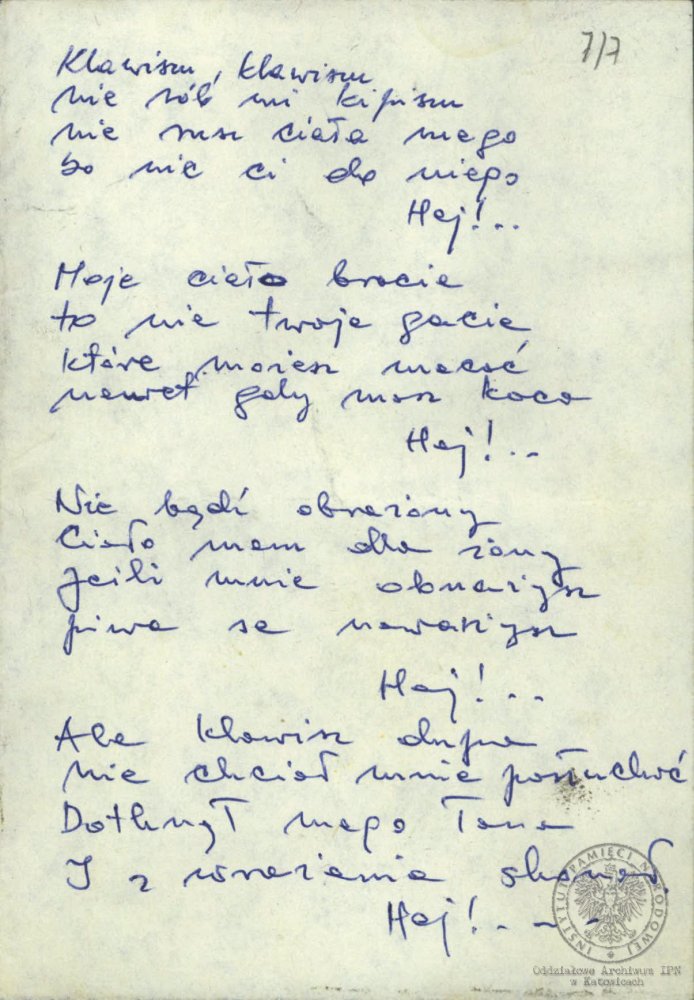 7/7
Klawiszu, klawiszu
nie rób mi kipiszu
nie rusz ciała mego
bo nic ci do niego
Hej!..
Moje ciało bracie
to nie twoje gacie
które możesz macać
nawet gdy masz kaca
Hej!..
Nie bądź obrażony
Ciało mam dla żony
Jeśli mnie obnażysz
piwa se nawarzysz
Hej!...
Ale klawisz dupa
nie chciał mnie posłuchać
Dotknął mego łona
I z wrażenia skonał.
Hej!....
INSTYTUT PAMIĘCI NARODOWEJ
Oddziałowe Archiwum IPN
w Katowicach